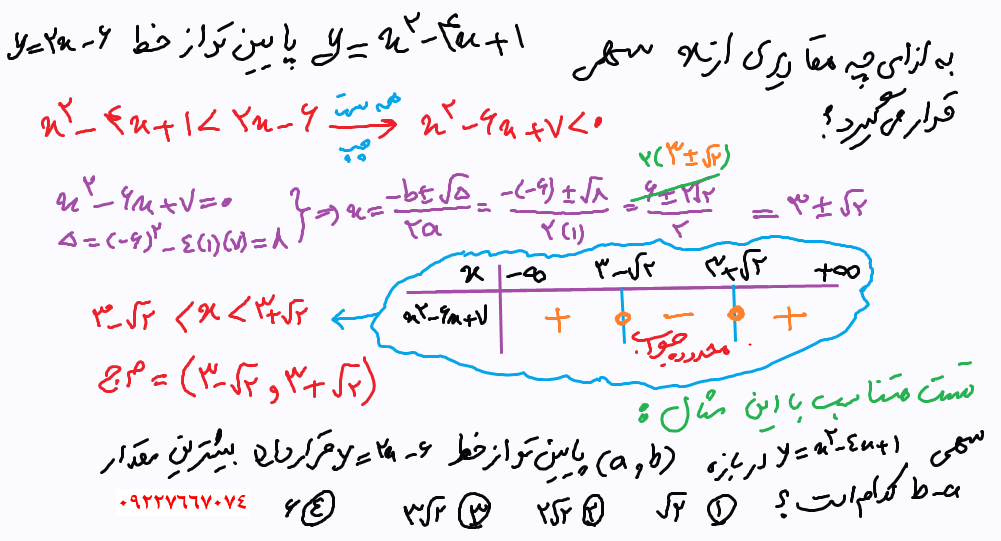 به ازای چه مقادیری از x سهمی y = x² - 4x + 1 پایین تر از خط y = 2x - 6
قرار می گیرد؟
x² - 4x + 1 < 2x - 6 سمت چپ → x² - 6x + 7 < 0
x² - 6x + 7 = 0
Δ = (-6)² - 4(1)(7) = 8
} ⇒ x = (-b ± √Δ)/2a = (-(-6) ± √8)/2(1) = (6 ± 2√2)/2 = 3 ± √2
2(3 ± √2)
x -∞ 3-√2 3+√2 +∞
x² - 6x + 7 + 0 - 0 +
محدوده جواب
3-√2 < x < 3+√2
مج ج = (3-√2 , 3+√2)
تست متناسب با این مثال :
سهمی y = x² - 4x + 1 در بازه (a,b) پایین تر از خط y = 2x - 6 قرار دارد بیشترین مقدار
b-a کدام است؟ ① √2 ② 2√2 ③ 3√2 ④ 6
09227667074